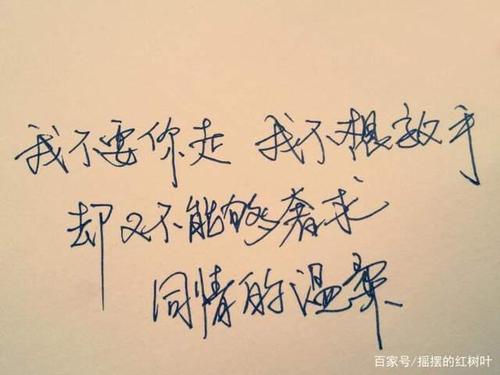 我不要你走 我不想放手
却又不能够奢求
同情的温柔
百家号/摇摆的红树叶